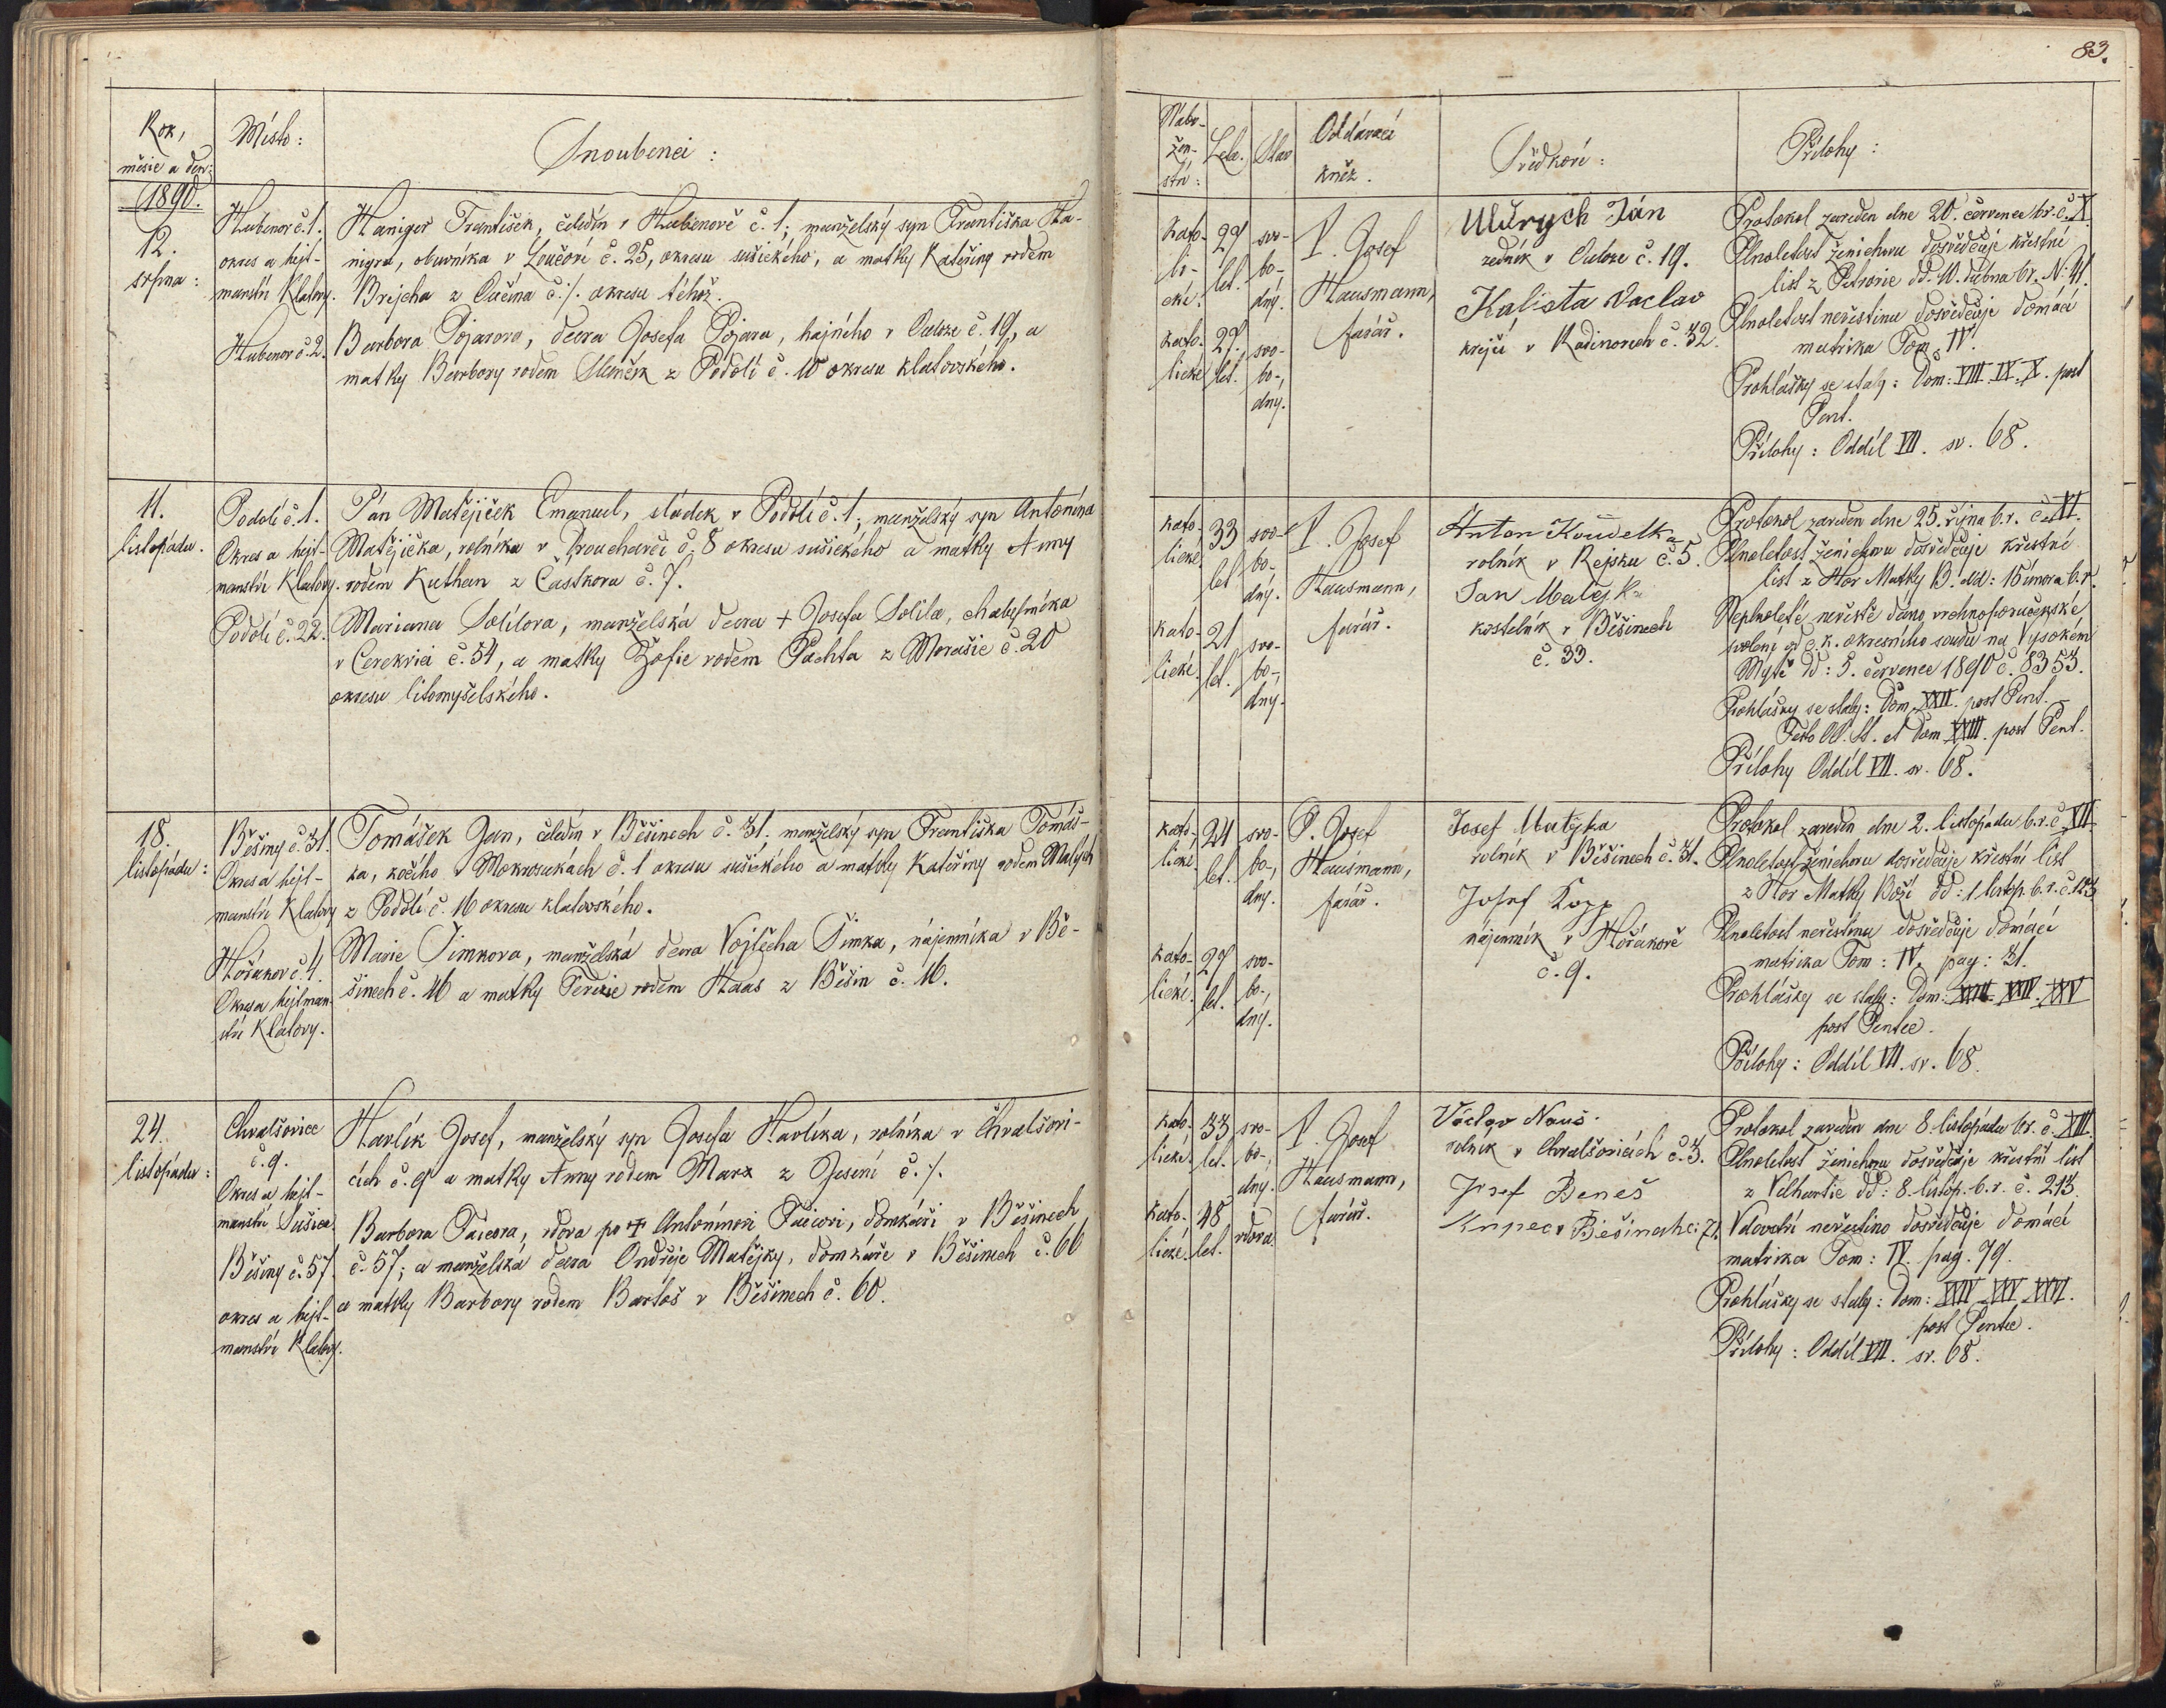 83.
Rok,
měsíc a den:
Místo:
Snoubenci:
1890.
12.
srpna:
Hubenov č. 1.
okres a hejt-
manství Klatovy.
Hubenov č. 2.
Haniger František, čeledín v Hubenově č. 1; manželský syn Františka Ha-
nigra, obuvníka v Loučové č. 25, okresu sušického, a matky Kateřiny rodem
Brejcha z č. /. okresu téhož.
Barbora Pojarova, dcera Josefa Pojara, hajného v č. 19, a
matky Barbory rodem z Podolí č. 10 okresu klatovského.
11.
listopadu.
Podolí č. 1.
Okres a hejt-
manství Klatovy.
Podolí č. 22.
Pán Matějíček Emanuel, sládek v Podolí č. 1; manželský syn Antonína
Matějíčka, rolníka v č. 8 okresu sušického a matky Anny
rodem Kuthan z Částkova č. 7.
Mariana Solilova, manželská dcera + Josefa Solila, chalupníka
v Cerekvici č. 54, a matky Žofie rodem Pachta z Morašic č. 20
okresu litomyšelského.
18.
listopadu:
Běšiny č. 31.
Okres a hejt-
manství Klatovy
Hořákov č. 1.
Okres a hejtman-
ství Klatovy.
Tomášek Jan, čeledín v Běšinech č. 31. manželský syn Františka Tomáš-
ka, kočího v Mokrosukách č. 1 okresu sušického a matky Kateřiny rodem Malých
z Podolí č. 16 okresu klatovského.
Marie Šimkova, manželská dcera Vojtěcha Šimka, nájemníka v Bě-
šinech č. 16 a matky Terezie rodem Haas z Běšin č. 16.
24.
listopadu:
Chvalšovice
č. 9.
Okres a hejt-
manství Sušice
Běšiny č. 57.
okres a hejt-
manství Klatovy.
Havlík Josef, manželský syn Josefa Havlíka, rolníka v Chvalšovi-
cích č. 9 a matky Anny rodem Marx z Jesení č. /.
Barbora Paicova, vdova po + Antonínovi Paicovi, domkáři v Běšinech
č. 57; a manželská dcera Ondřeje Matějky, domkáře v Běšinech č. 66
a matky Barbory rodem Bartoš v Běšinech č. 60.
Nábo-
žen-
ství:
Léta.
Stav
Oddávací
kněz.
Svědkové:
Přílohy:
kato-
li-
cké.
29
let.
svo-
bo-
dný.
kato-
lické
27.
let.
svo-
bo-,
dný.
P. Josef
Hausmann,
farář.
Ulldrych Ján
zedník v č. 19.
Kalista Vaclav
krejčí v Radinovech č. 32.
Protokol zaveden dne 20. července b.r. č. X.
Plnoletost ženichovu dosvědčuje křestní
list z Petrovic dd. 10. dubna b.r. N: 41.
Plnoletost nevěstinu dosvědčuje domácí
matrika Tom. IV.
Prohlášky se staly: Dom: VIII. IX. X. post
Pent.
Přílohy: Oddíl VII. sv. 68.
kato-
lické.
33
let
svo-
bo-
dný.
kato-
lické.
21
let.
svo-
bo-,
dný.
P. Josef
Hausmann,
farář.
Anton Koudelka
rolník v Rejsku č. 5.
Jan Matějka
kostelník v Běšinech
č. 33.
Protokol zaveden dne 25. října b.r. č. XI.
Plnoletost ženichovu dosvědčuje křestní
list z Hor Matky B. dd: 15 února b.r.
Neplnoleté nevěstě dáno vrchnoporučenské
svolení od c. k. okresního soudu na Vysokém
Mýtě dd: 5. července 1890 č. 8353.
Prohlášky se staly: Dom. XXII. post Pent.
Festo OO. SS. et Dom XXIII. post Pent.
Přílohy Oddíl VII. sv. 68.
kato-
lické.
24
let.
svo-
bo-,
dný.
kato-
lické.
29
let.
svo-
bo-,
dný.
P. Josef
Hausmann,
farář.
Josef Matějka
rolník v Běšinech č. 31.
Josef Kopp
nájemník v Hořákově
č. 9.
Protokol zaveden dne 2. listopadu b.r. č. XII.
Plnoletost ženichovu dosvědčuje křestní list
z Hor Matky Boží dd: 1 listop. b.r. č. 123
Plnoletost nevěstinu dosvědčuje domácí
matrika Tom: IV. pag: 31.
Prohlášky se staly: Dom: XXIII. XXIV. XXV
post Pentec.
Přílohy: Oddíl VII. sv. 68.
kato-
lické.
33
let.
svo-
bo-,
dný.
kato-
lické.
48
let.
vdova.
P. Josef
Hausmann,
farář.
Václav Nauš
rolník v Chvalšovicích č. 3.
Josef Beneš
Kupec v Běšinah č: 71.
Protokol zaveden dne 8. listopadu b.r. č. XIII.
Plnoletost ženichovu dosvědčuje křestní list
z Velhartic dd: 8. listop. b.r. č. 213.
Vdovství nevěstino dosvědčuje domácí
matrika Tom: IV. pag. 79.
Prohlášky se staly: Dom: XXIV. XXV. XXVI.
post Pentec.
Přílohy: Oddíl VII. sv. 68.